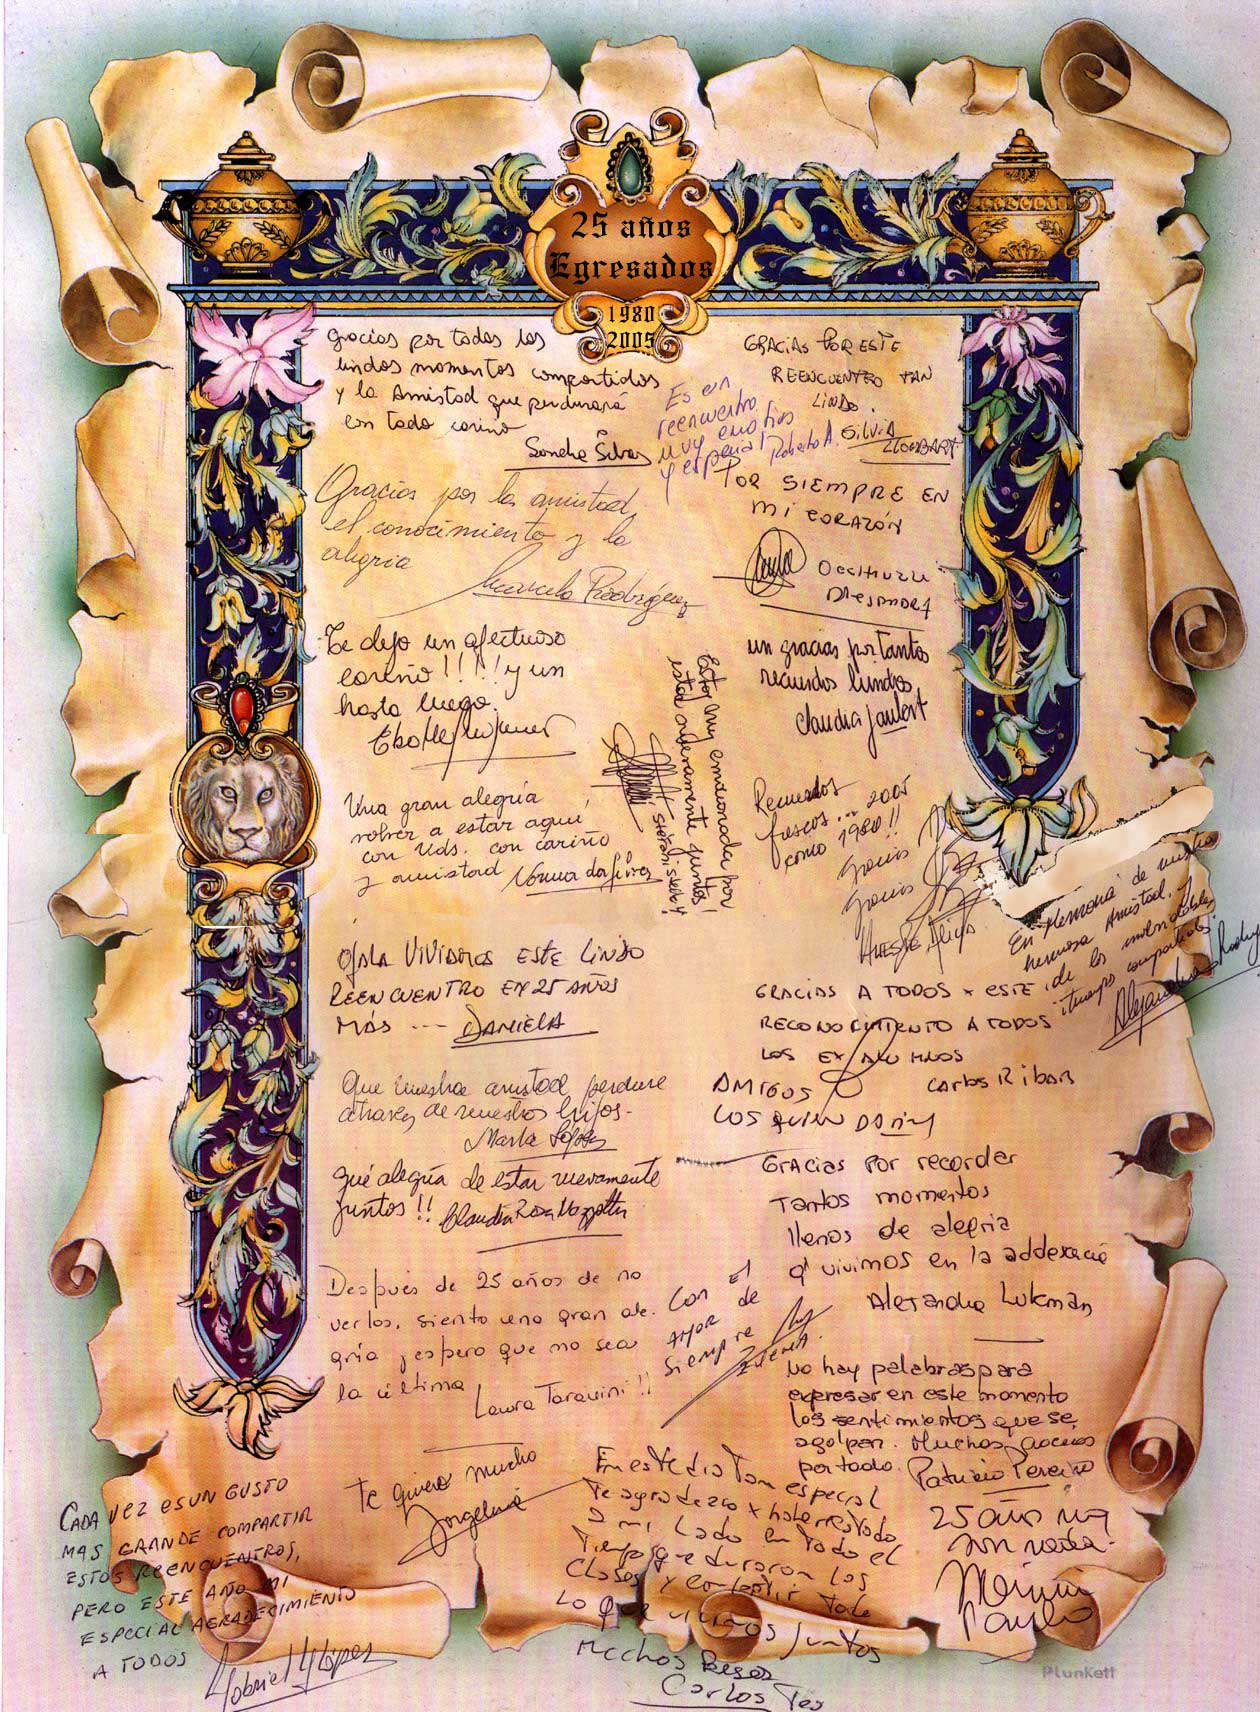 25 años
Egresados
1980
2005
Gracias por todos los
lindos momentos compartidos
y la Amistad que perdurará
con todo cariño
Sandra Silva
Es un
reencuentro
muy emotivo
y especial Roberto A.
GRACIAS POR ESTE
REENCUENTRO TAN
LINDO.
SILVIA
LLOMBART
POR SIEMPRE EN
Mi CORAZÓN
Gracias por la amistad,
el conocimiento y la
alegria
Marcela Rodríguez
Te dejo un afectuoso
cariño!!!! y un
hasta luego.
un gracias por tantos
recuerdos lindos
Claudia Jaubert
Estoy muy emocionada por
estar nuevamente juntos!
Una gran alegría
volver a estar aquí
con Uds. con cariño
y amistad Norma
Recuerdos
frescos... 2005
como 1980!!
Gracias
Gracias
En Memoria de nuestra
hermosa Amistad. Y
de los inolvidables
tiempos compartidos.
Alejandra
OJALA VIVIAMOS ESTE LINDO
REENCUENTRO EN 25 AÑOS
MÁS --- DANIELA
GRACIAS A TODOS x ESTE
RECONOCIMIENTO A TODOS
LOS EX ALUMNOS
AMIGOS CARLOS RIBAS
LOS QUIERO
Que nuestra amistad perdure
a través de nuestros hijos.
Marta
Qué alegría de estar nuevamente
juntos!! Claudia Rosa
Gracias por recordar
tantos momentos
llenos de alegria
q' vivimos en la
Alejandra Lukman
Después de 25 años de no
verlos, siento una gran ale.
gría y espero que no sea
la última
Laura Tarquini!!
Con El
AMOR de
Siempre
No hay palabras para
expresar en este momento
los sentimientos que se
agolpan. Muchas gracias
por todo. Patricio Pereiro
Te quiero mucho
Jorgelina
En este dia tan especial
Te agradezco x haber estado
a mi lado en todo el
Tiempo que duraron las
Clases y compartir todo
Lo que vivimos Juntos
Muchos Besos
Carlos
25 años no
son nada.
CADA VEZ ES UN GUSTO
MAS GRANDE COMPARTIR
ESTOS REENCUENTROS,
PERO ESTE AÑO MI
ESPECIAL AGRADECIMIENTO
A TODOS
Gabriel López
PlunKett